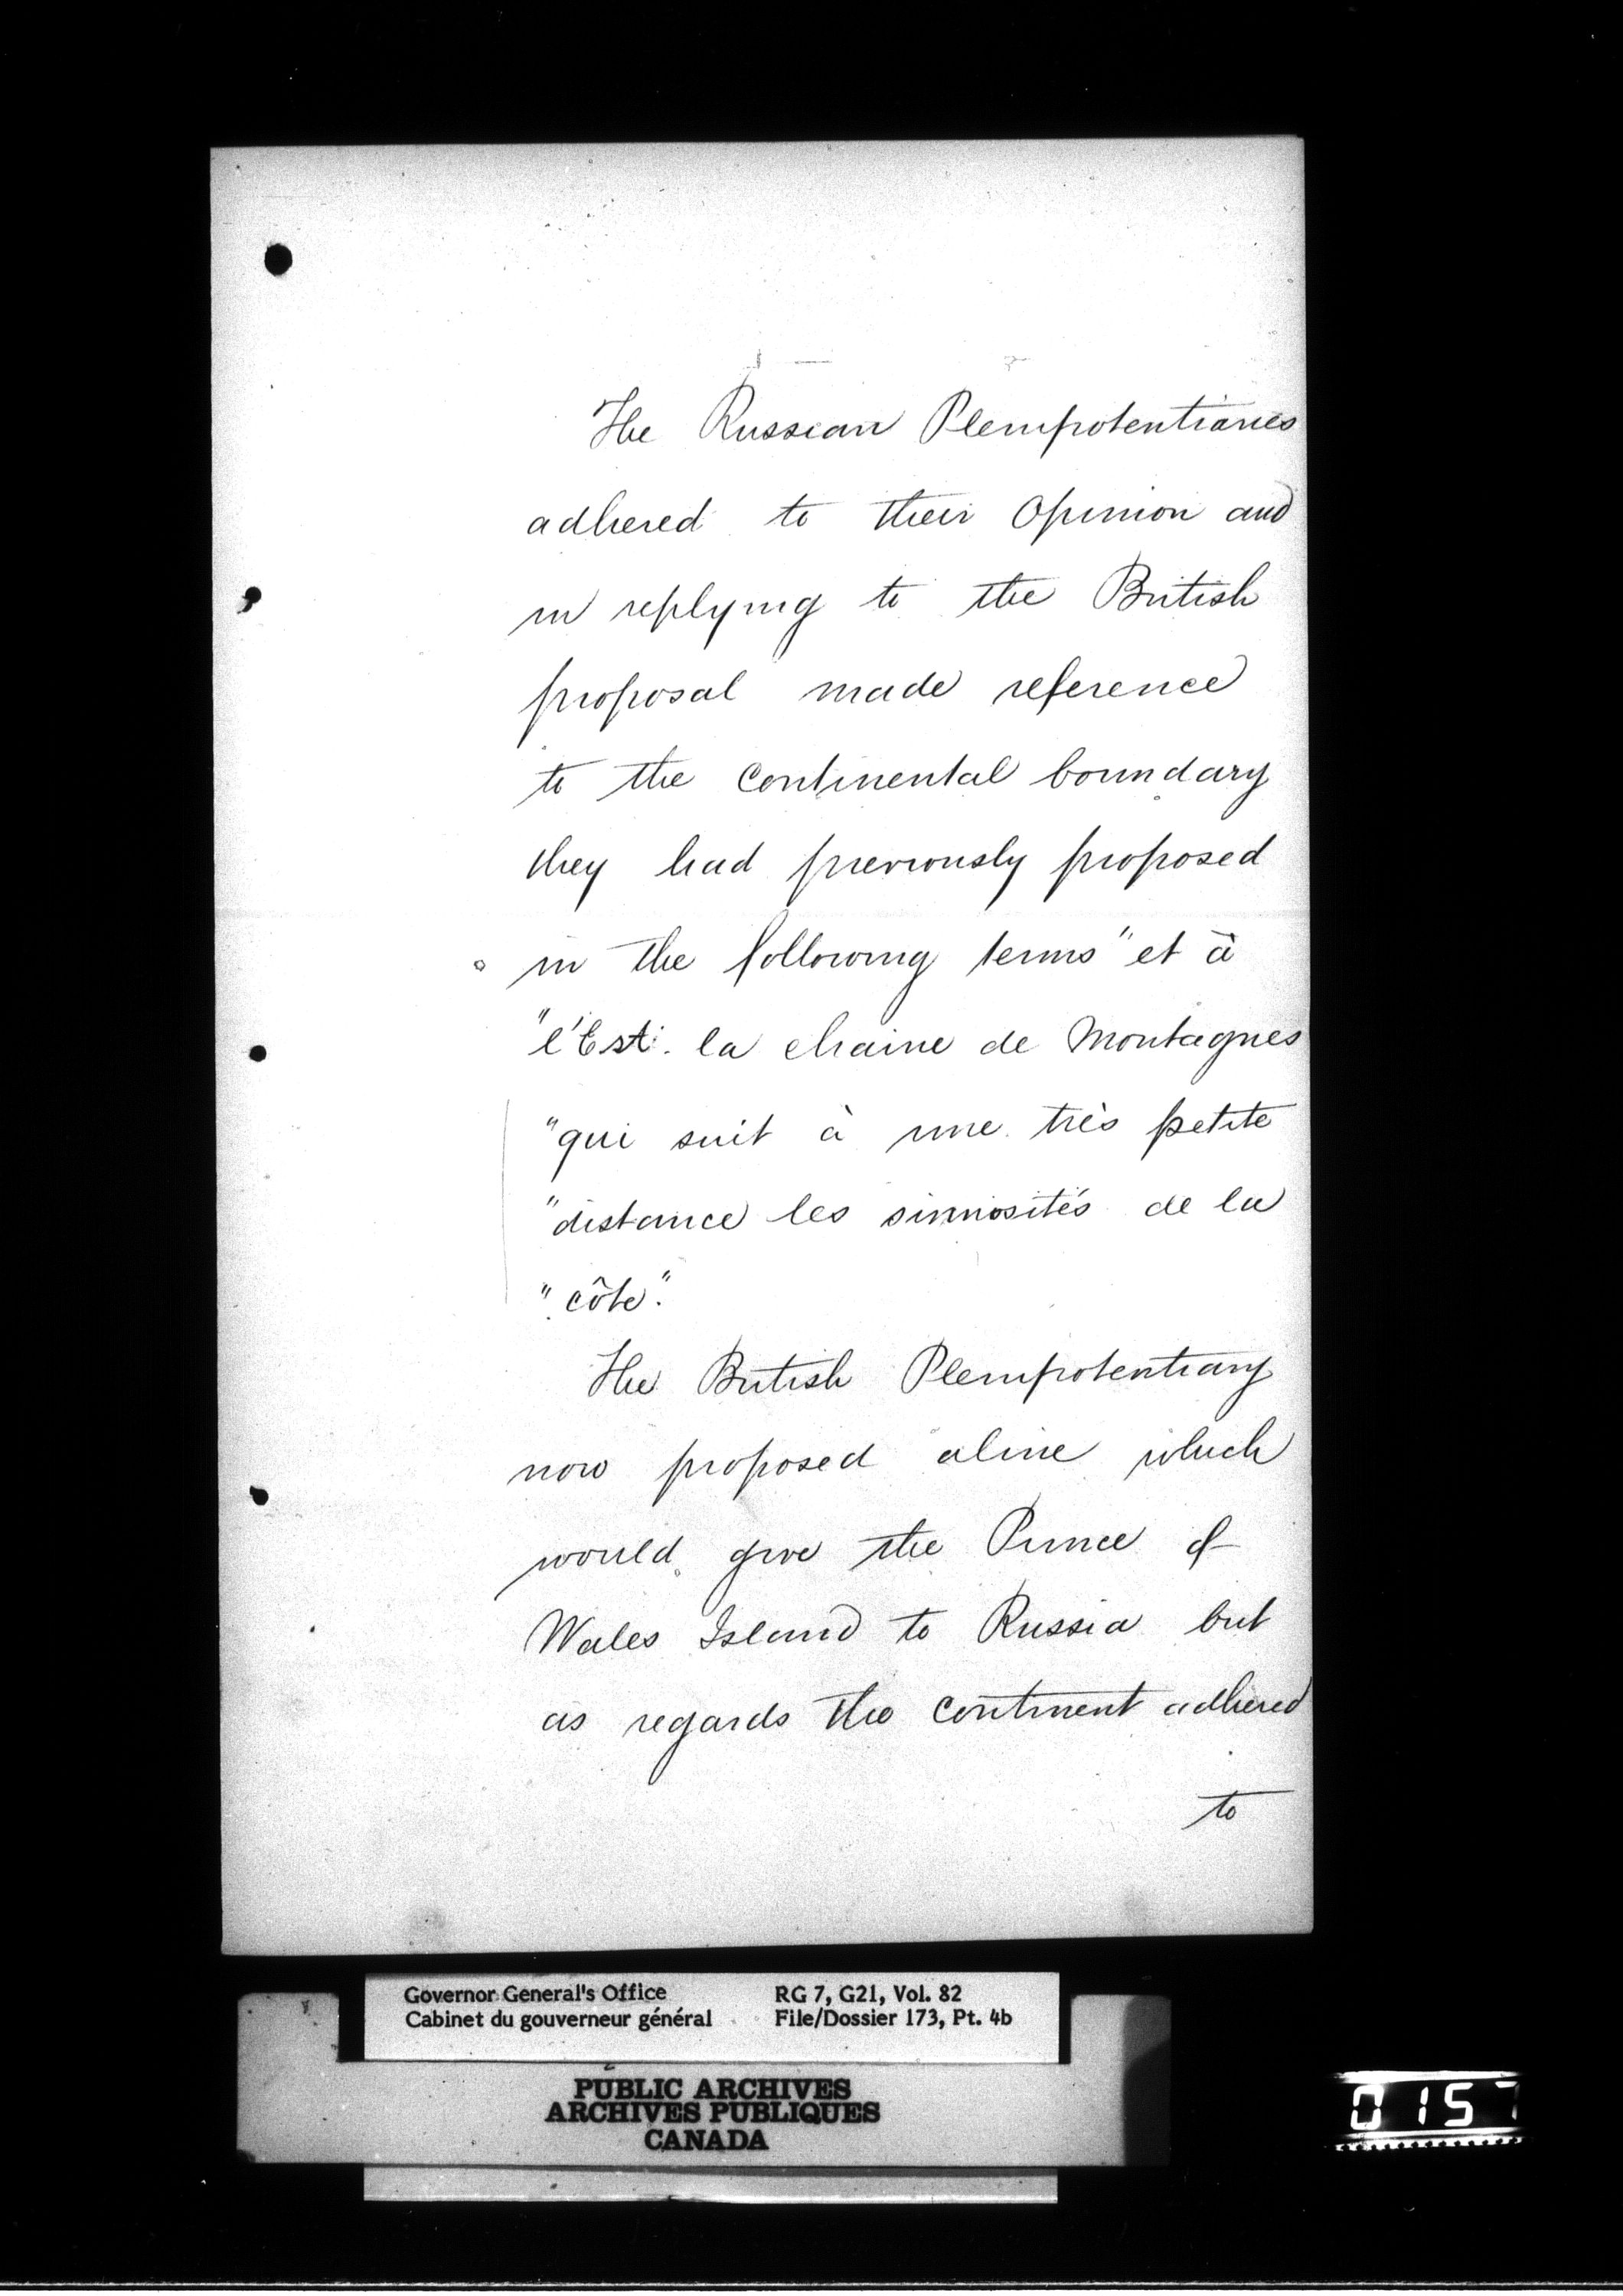 The Russian Plenipotentiaries
adhered to their Opinion and
in replying to the British
proposal made reference
to the Continental boundary
they had previously proposed
in the following terms "et à
"l'Est. la chaine de Montagnes
"qui suit à une très petite
"distance les sinuosités de la
"côte".
The British Plenipotentiary
now proposed a line which
would give the Prince of
Wales Island to Russia but
as regards the Continent adhered
to
Governor General's Office
Cabinet du gouverneur général
RG 7, G21, Vol. 82
File/Dossier 173, Pt. 4b
PUBLIC ARCHIVES
ARCHIVES PUBLIQUES
CANADA
0157